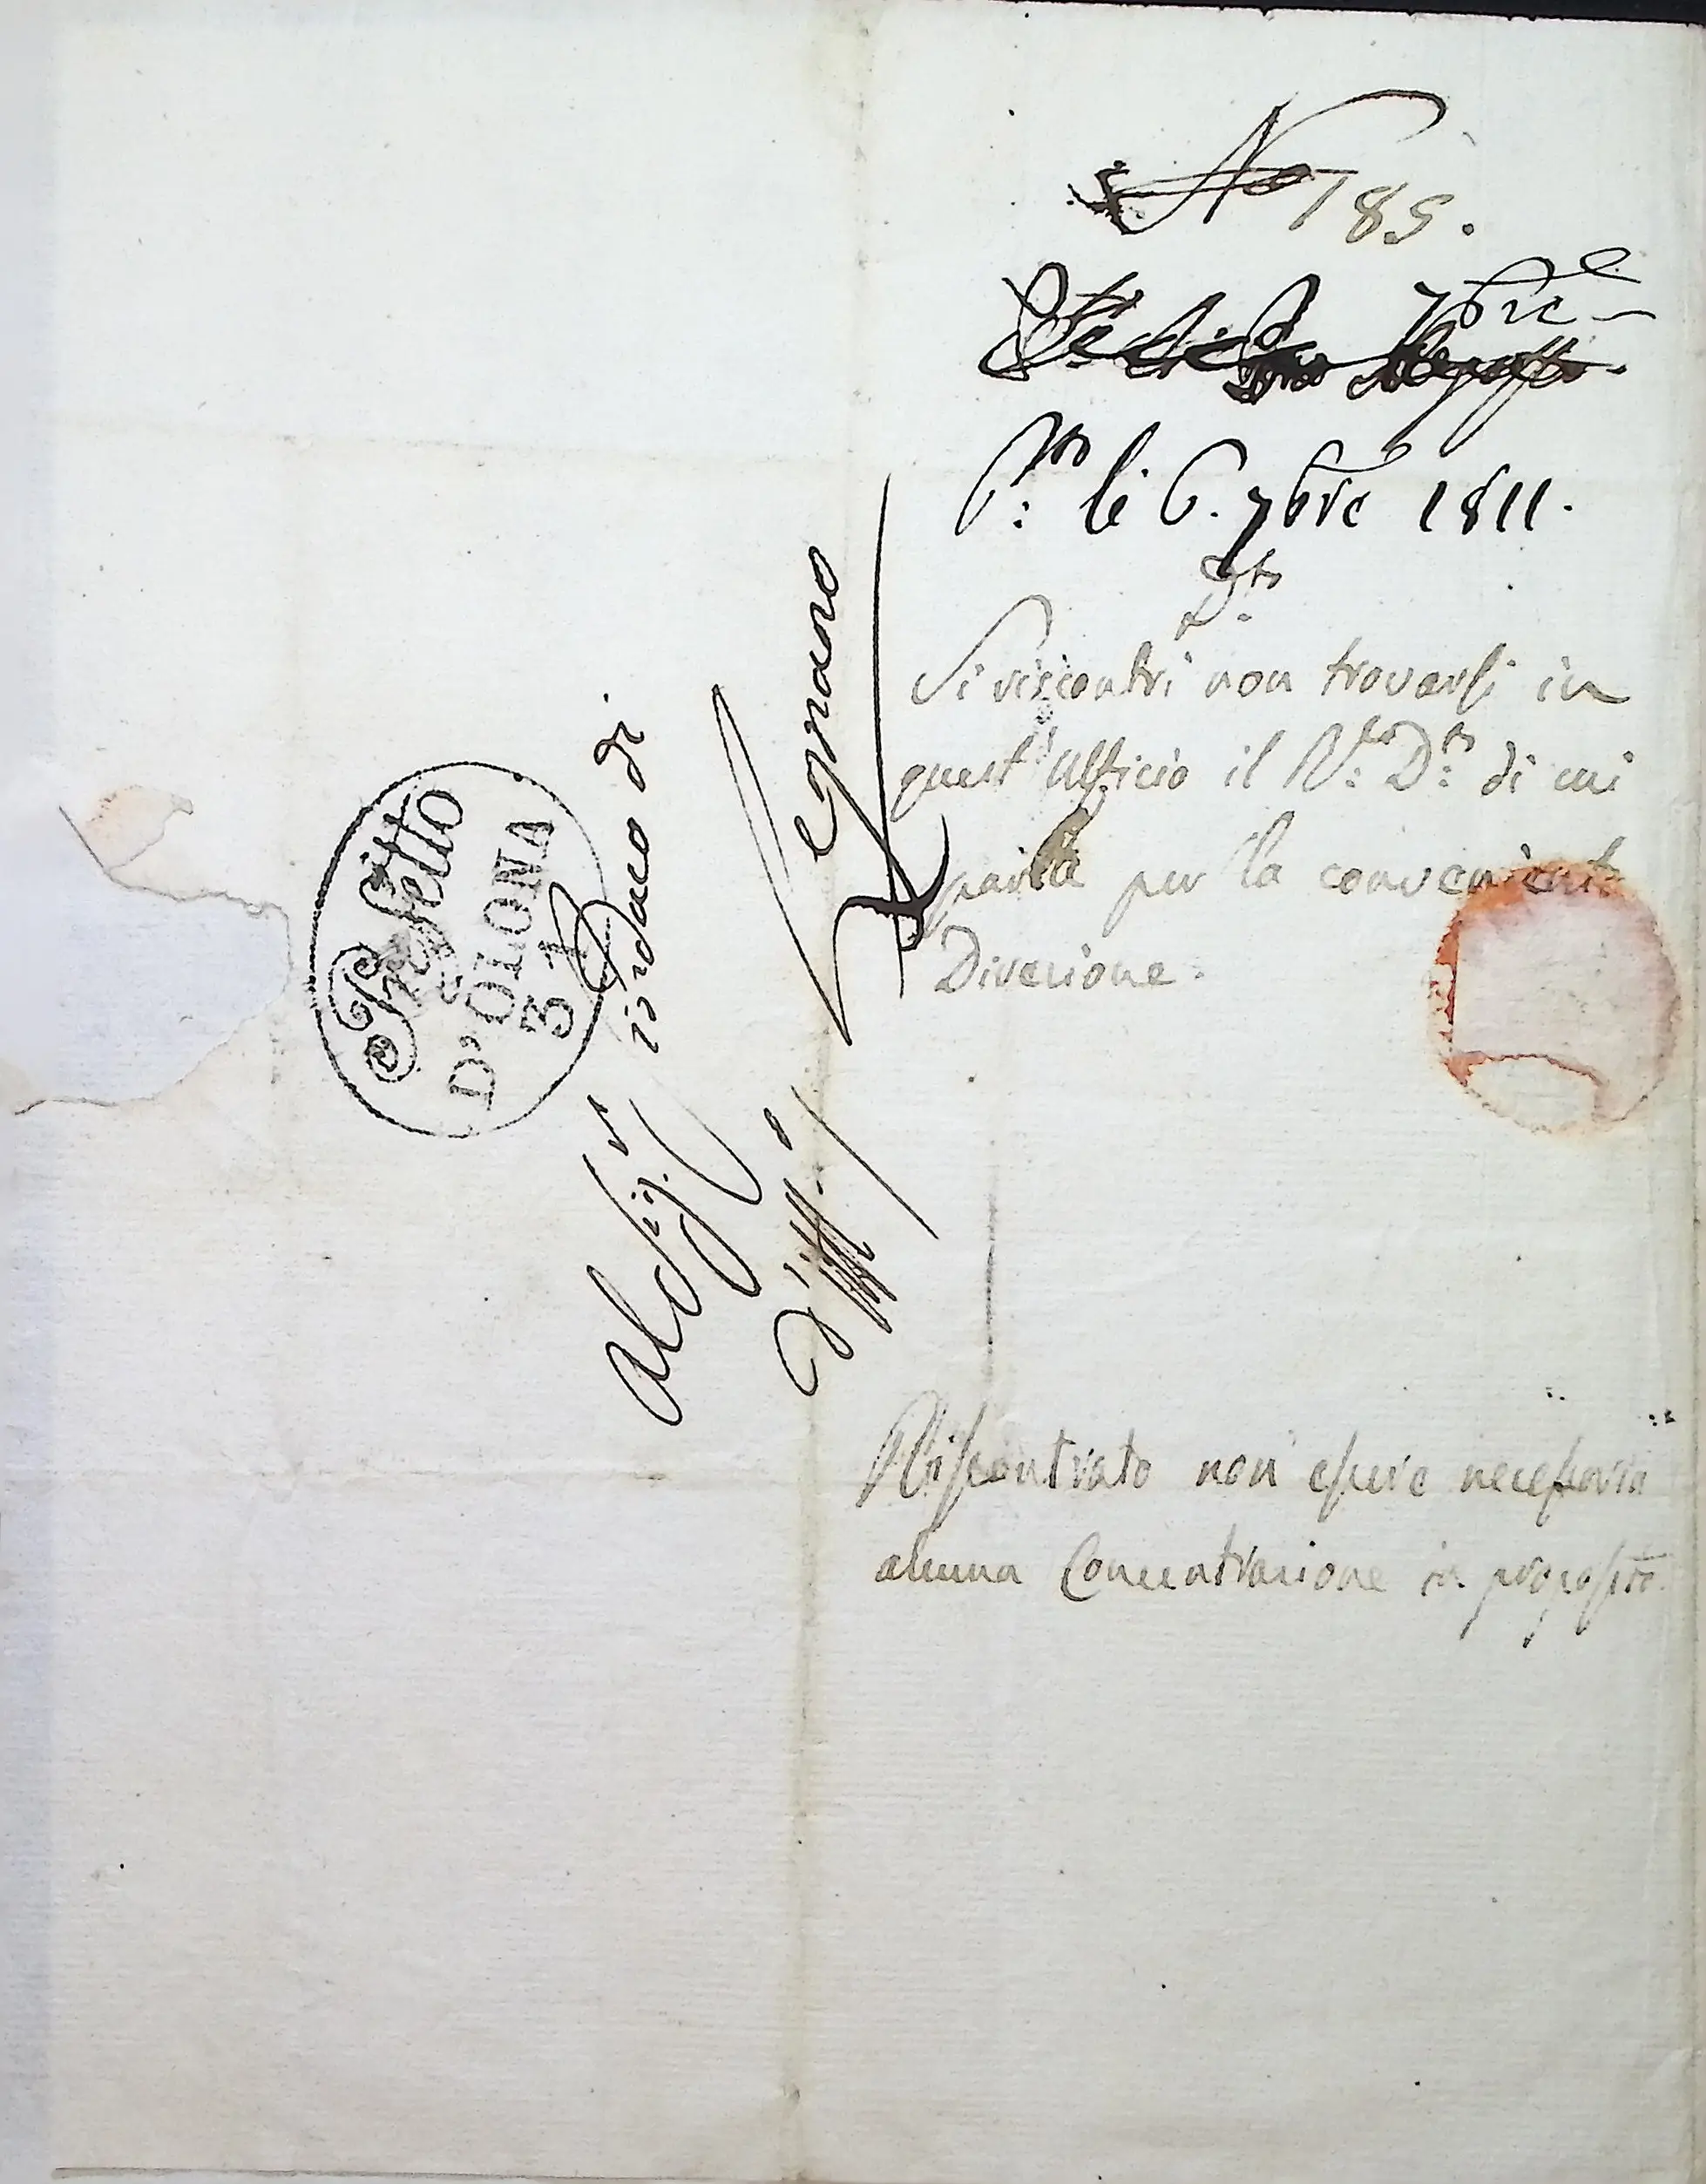 No 185.
7bre
P.to li 6. 7bre 1811.
D.to
Si riscontri non trovarsi in
quest'Ufficio il N.ro D.to di cui
parla per la conveniente
Direzione.
Riscontrato non essere necessaria
alcuna Concentrazione in proposito.
Prefetto
D'OLONA
31
Al Sig.r Sindaco di
Legnano
d'Uff.o